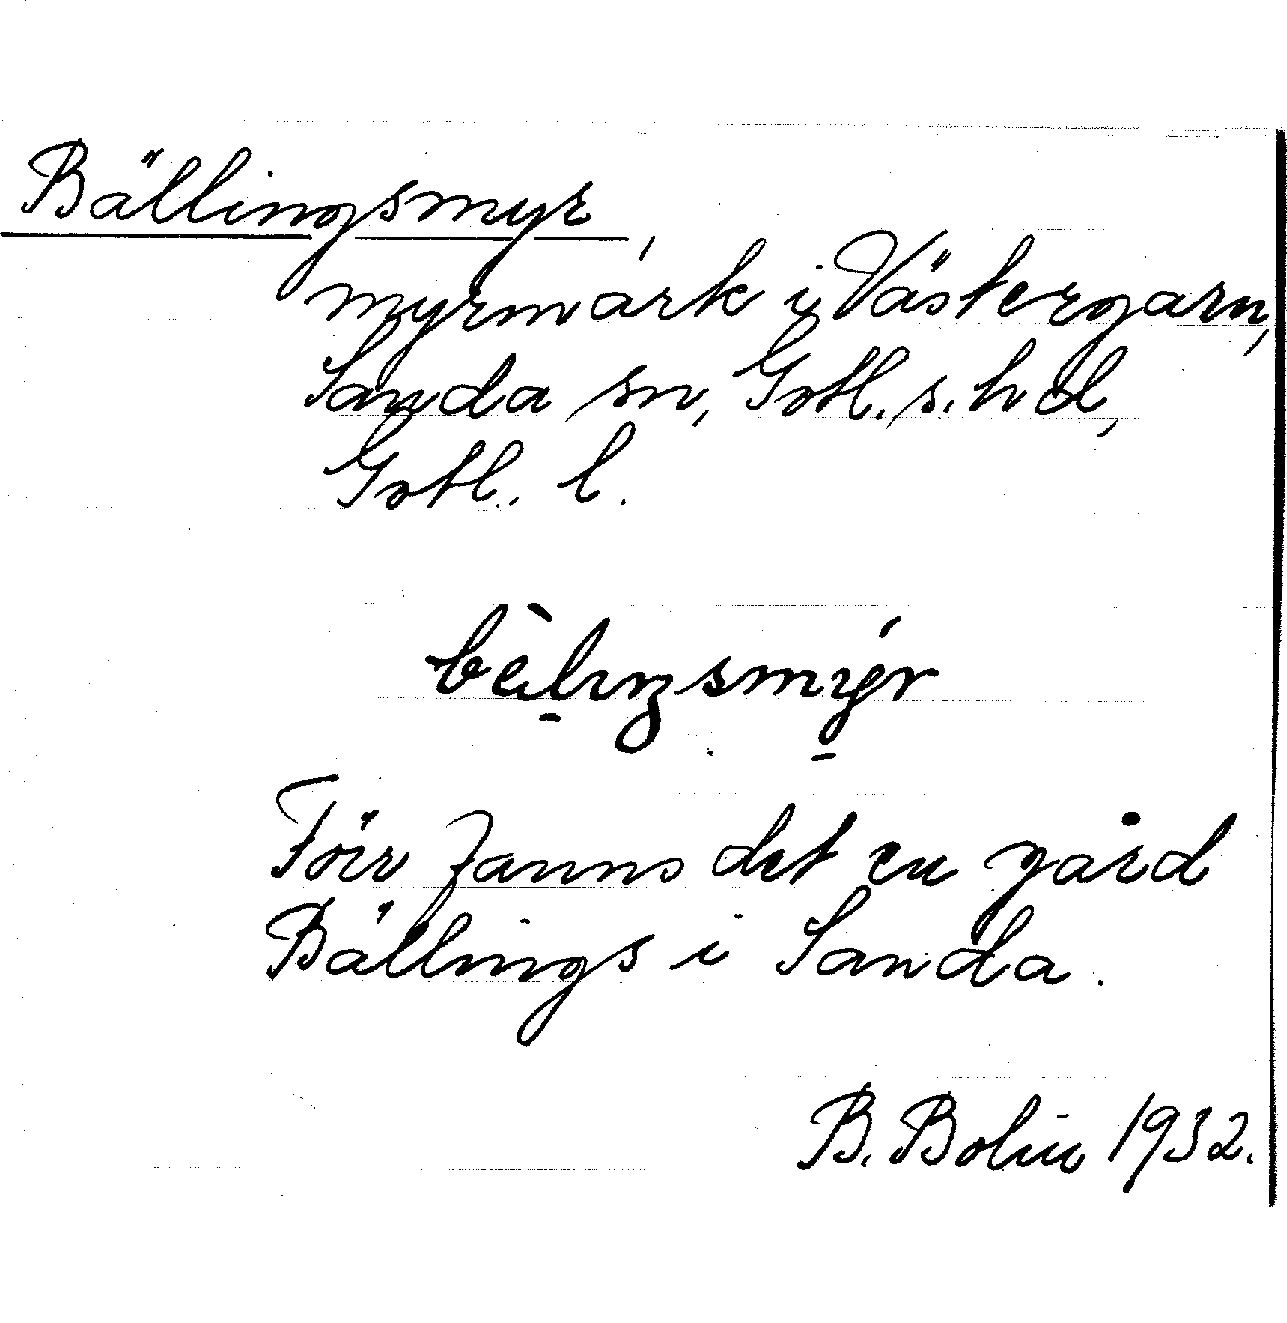 Bällingsmyr,
myrmark i Västergarn,
Sanda sn, Gotl. s. hd,
Gotl. l.
Förr fanns det en gård
Bällings i Sanda.
B. Bolin 1932.